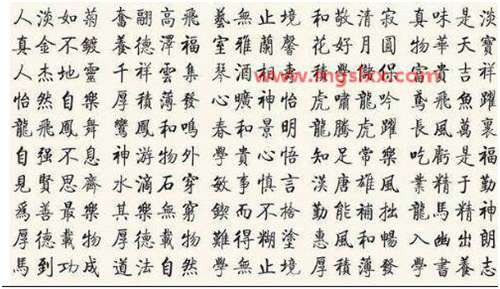 人淡如菊 奮翮高飛 藝無止境 和敬清寂 真味是淡
真金不鍍 養德澤福 室雅蘭馨 花好月圓 物華天寶
人杰地靈 千祥雲集 琴 酒 富貴吉祥
怡然自樂 厚積薄發 心曠神怡 虎嘯龍吟 鳶飛魚躍
龍飛鳳舞 鸞鳳和鳴 春和景明 龍騰虎躍 長風萬裏
自强不息 神游物外 學貴心悟 知足常樂 吃虧是福
見賢思齊 水滴石穿 敏事慎言 漢唐雄風 業精于勤
爲善最樂 其樂無窮 鍥而不捨 勤能補拙 龍馬精神
厚德載物 厚德載物 難得糊塗 惠風和暢 入幽出朗
馬到功成 道法自然 學無止境 厚積薄發 學書養志